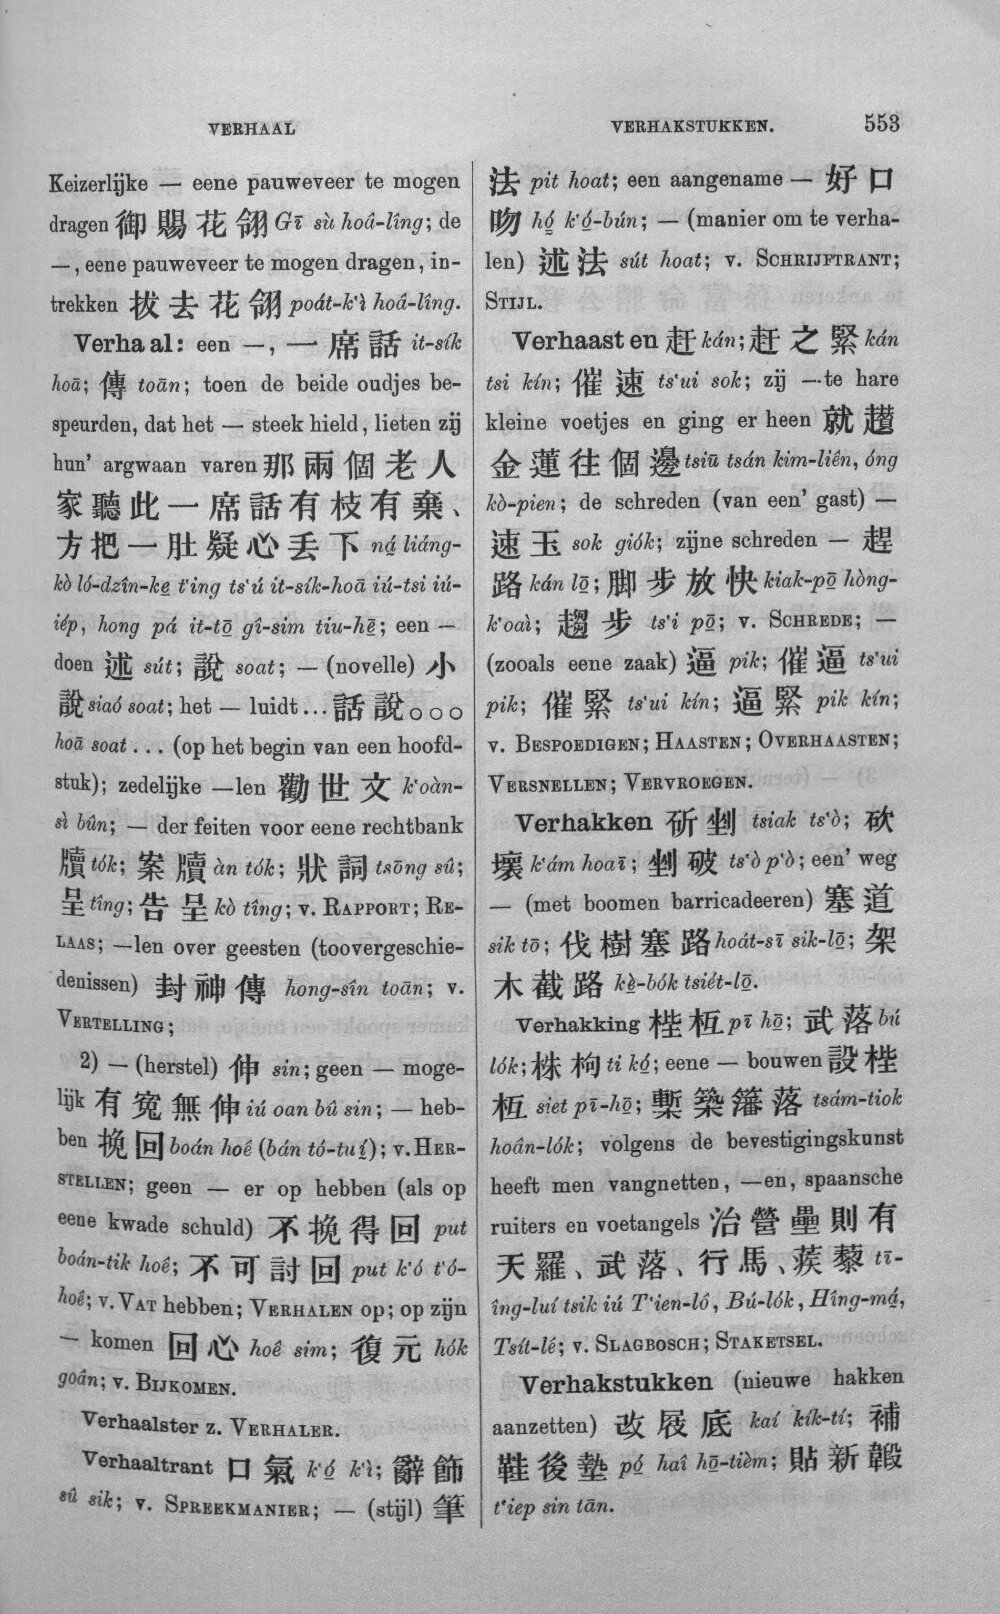 VERHAAL
VERHAKSTUKKEN.
553
Keizerlijke — eene pauweveer te mogen
dragen 御賜花翎 Gī sù hoâ-lîng; de
—, eene pauweveer te mogen dragen, in-
trekken 拔去花翎 poát-k'ì hoâ-lîng.
Verhaal: een —, 一席話 it-sík
hoā; 傳 toān; toen de beide oudjes be-
speurden, dat het — steek hield, lieten zij
hun' argwaan varen 那兩個老人
家聽此一席話有枝有棄、
方把一肚疑心丟下 ná̤ liáng-
kò ló-dzîn-ke̤ t'ing ts'ú it-sík-hoā iú-tsi iú-
iép, hong pá it-tō̤ gî-sim tiu-hē̤; een —
doen 述 sút; 說 soat; — (novelle) 小
說 siaó soat; het — luidt... 話說。。。
hoā soat... (op het begin van een hoofd-
stuk); zedelijke —len 勸世文 k'oàn-
sì bûn; — der feiten voor eene rechtbank
牘 tók; 案牘 àn tók; 狀詞 tsōng sû;
呈 tîng; 告呈 kò tîng; v. RAPPORT; RE-
LAAS; —len over geesten (toovergeschie-
denissen) 封神傳 hong-sîn toān; v.
VERTELLING;
2) — (herstel) 伸 sin; geen — moge-
lijk 有冤無伸 iú oan bû sin; — heb-
ben 挽回 boán hoê (bán tó-tuí̤); v. HER-
STELLEN; geen — er op hebben (als op
eene kwade schuld) 不挽得回 put
boán-tik hoê; 不可討回 put k'ó t'ó-
hoê; v. VAT hebben; VERHALEN op; op zijn
— komen 回心 hoê sim; 復元 hók
goân; v. BIJKOMEN.
Verhaalster z. VERHALER.
Verhaaltrant 口氣 k'ó̤ k'ì; 辭飾
sû sik; v. SPREEKMANIER; — (stijl) 筆
法 pit hoat; een aangename — 好口
吻 hó̤ k'ó̤-bún; — (manier om te verha-
len) 述法 sút hoat; v. SCHRIJFTRANT;
STIJL.
Verhaasten 赶 kán; 赶之緊 kán
tsi kín; 催速 ts'ui sok; zij —te hare
kleine voetjes en ging er heen 就趲
金蓮往個邊 tsiū tsán kim-liên, óng
kò-pien; de schreden (van een' gast) —
速玉 sok giók; zijne schreden — 趕
路 kán lō̤; 脚步放快 kiak-pō̤ hòng-
k'oaì; 趨步 ts'i pō̤; v. SCHREDE; —
(zooals eene zaak) 逼 pik; 催逼 ts'ui
pik; 催緊 ts'ui kín; 逼緊 pik kín;
v. BESPOEDIGEN; HAASTEN; OVERHAASTEN;
VERSNELLEN; VERVROEGEN.
Verhakken 斫剉 tsiak ts'ò; 砍
壞 k'ám hoaī; 剉破 ts'ò p'ò; een' weg
— (met boomen barricadeeren) 塞道
sik tō; 伐樹塞路 hoát-sī sik-lō̤; 架
木截路 kè̤-bók tsiét-lō̤.
Verhakking 梐枑 pī hō̤; 武落 bú
lók; 株枸 ti kó̤; eene — bouwen 設梐
枑 siet pī-hō̤; 塹築籓落 tsám-tiok
hoân-lók; volgens de bevestigingskunst
heeft men vangnetten, —en, spaansche
ruiters en voetangels 治營壘則有
天羅、武落、行馬、蒺藜 tī-
îng-luí tsik iú T'ien-lô, Bú-lók, Hîng-má̤,
Tsít-lé; v. SLAGBOSCH; STAKETSEL.
Verhakstukken (nieuwe hakken
aanzetten) 改屐底 kaí kík-tí; 補
鞋後墊 pó̤ haî hō̤-tièm; 貼新鞎
t'iep sin tān.